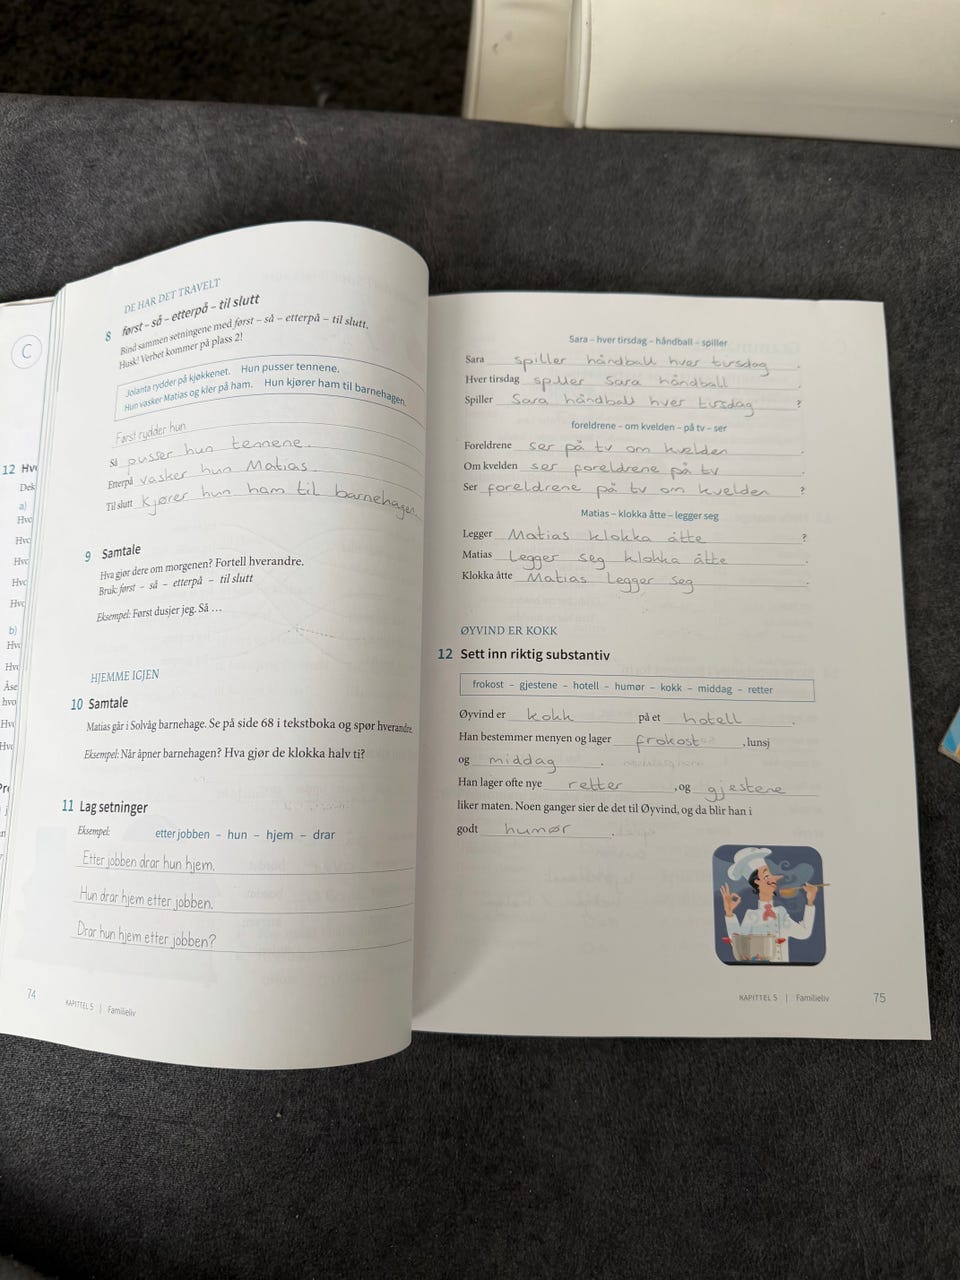 C
12 Hv
Dek
a)
Hvc
Hvc
Hvc
Hvc
Hvc
b)
Hvc
Hvc
Åse
hvo
Hvc
Hvc
DE HAR DET TRAVELT
8 først – så – etterpå – til slutt
Bind sammen setningene med først – så – etterpå – til slutt.
Husk! Verbet kommer på plass 2!
Jolanta rydder på kjøkkenet. Hun pusser tennene.
Hun vasker Matias og kler på ham. Hun kjører ham til barnehagen.
Først rydder hun
Så pusser hun tennene.
Etterpå vasker hun Matias.
Til slutt kjører hun ham til barnehagen.
9 Samtale
Hva gjør dere om morgenen? Fortell hverandre.
Bruk: først – så – etterpå – til slutt
Eksempel: Først dusjer jeg. Så …
HJEMME IGJEN
10 Samtale
Matias går i Solvåg barnehage. Se på side 68 i tekstboka og spør hverandre.
Eksempel: Når åpner barnehagen? Hva gjør de klokka halv ti?
11 Lag setninger
Eksempel: etter jobben – hun – hjem – drar
Etter jobben drar hun hjem.
Hun drar hjem etter jobben.
Drar hun hjem etter jobben?
74 KAPITTEL 5 | Familieliv
Sara – hver tirsdag – håndball – spiller
Sara spiller håndball hver tirsdag .
Hver tirsdag spiller Sara håndball .
Spiller Sara håndball hver tirsdag ?
foreldrene – om kvelden – på tv – ser
Foreldrene ser på tv om kvelden .
Om kvelden ser foreldrene på tv .
Ser foreldrene på tv om kvelden ?
Matias – klokka åtte – legger seg
Legger Matias klokka åtte ?
Matias Legger seg klokka åtte .
Klokka åtte Matias Legger seg .
ØYVIND ER KOKK
12 Sett inn riktig substantiv
frokost – gjestene – hotell – humør – kokk – middag – retter
Øyvind er kokk på et hotell .
Han bestemmer menyen og lager frokost , lunsj
og middag .
Han lager ofte nye retter , og gjestene
liker maten. Noen ganger sier de det til Øyvind, og da blir han i
godt humør .
KAPITTEL 5 | Familieliv 75